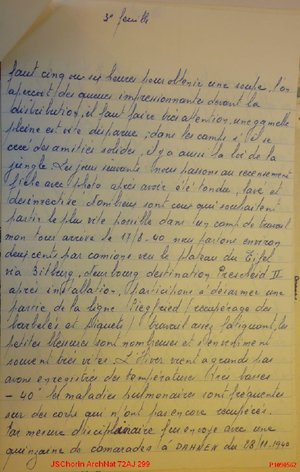 3e feuille
faut cinq ou six heures pour obtenir une soupe, l'on
aperçoit des queues impressionnantes devant la
distribution, il faut faire très attention, une gamelle
pleine est vite disparue; dans les camps s'il se
crée des amitiés solides, il y a aussi la loi de la
jungle. Les jours suivants nous passons au recensement
fiche avec photo après avoir été tondu, lavé et
désinfecté. Nombreux sont ceux qui souhaitent
partir le plus vite possible dans un camp de travail
mon tour arrive le 17/8-40 nous partons environ
deux cents par camions vers le plateau du Eifel
via Bitburg, destination II
après installation, participons à désarmer une
partie de la ligne Siegfried (récupération des
barbelés et piquets) travail assez fatiguant, les
petites blessures sont nombreuses et s'enveniment
souvent très vites. L'hiver vient à grands pas
avons enregistrés des températures très basses
- 40° les maladies pulmonaires sont fréquentes
sur des corps qui n'ont pas encore récupérés.
Par mesure disciplinaire suis envoyé avec une
quinzaine de camarades à DAHNEN du 28-11-1940
JSChorin ArchNat 72AJ 299